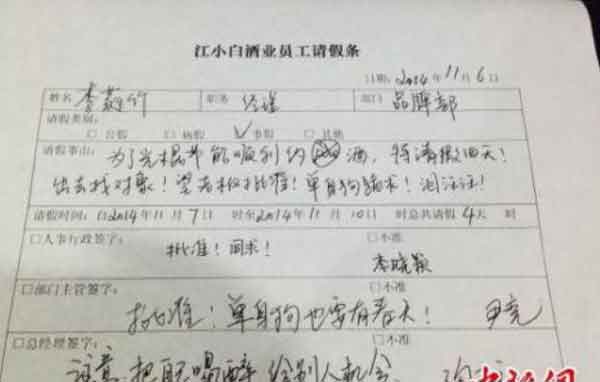 江小白酒业员工请假条
日期：2014年11月6日
姓名 李 竹 职务 经理 部门 品牌部
请假类别：
□ 公假 □ 病假 ✓ 事假 □ 其他
请假事由： 为了光棍节能顺利约 酒，特请假四天！
出去找对象！望老板批准！单身狗跪求！泪汪汪！
请假时间：自2014年11月7日 时至2014年11月10日 时总共请假4天 时
□人事行政签字： □不准
批准！同求！ 李晓颖
□部门主管签字： □不准
批准！单身狗也要有春天！ 尹亮
□总经理签字： □不准
注意 把 喝醉 给别人机会